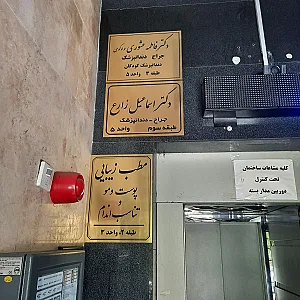 دکتر فاطمه عشوری
جراح دندانپزشک
دندانپزشک کودکان
طبقه ۳ واحد ۵
دکتر اسماعیل زارع
جراح - دندانپزشک
طبقه سوم واحد ۵
مطب زیبایی
پوست و مو
و
تناسب اندام
طبقه ۲، واحد ۳
کلیه مشاعات ساختمان
تحت کنترل
دوربین مدار بسته